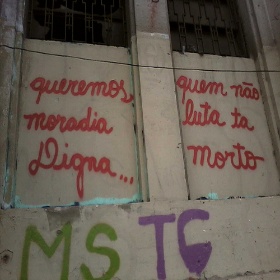 queremos
moradia
Digna...
quem não
luta ta
morto
MSTC